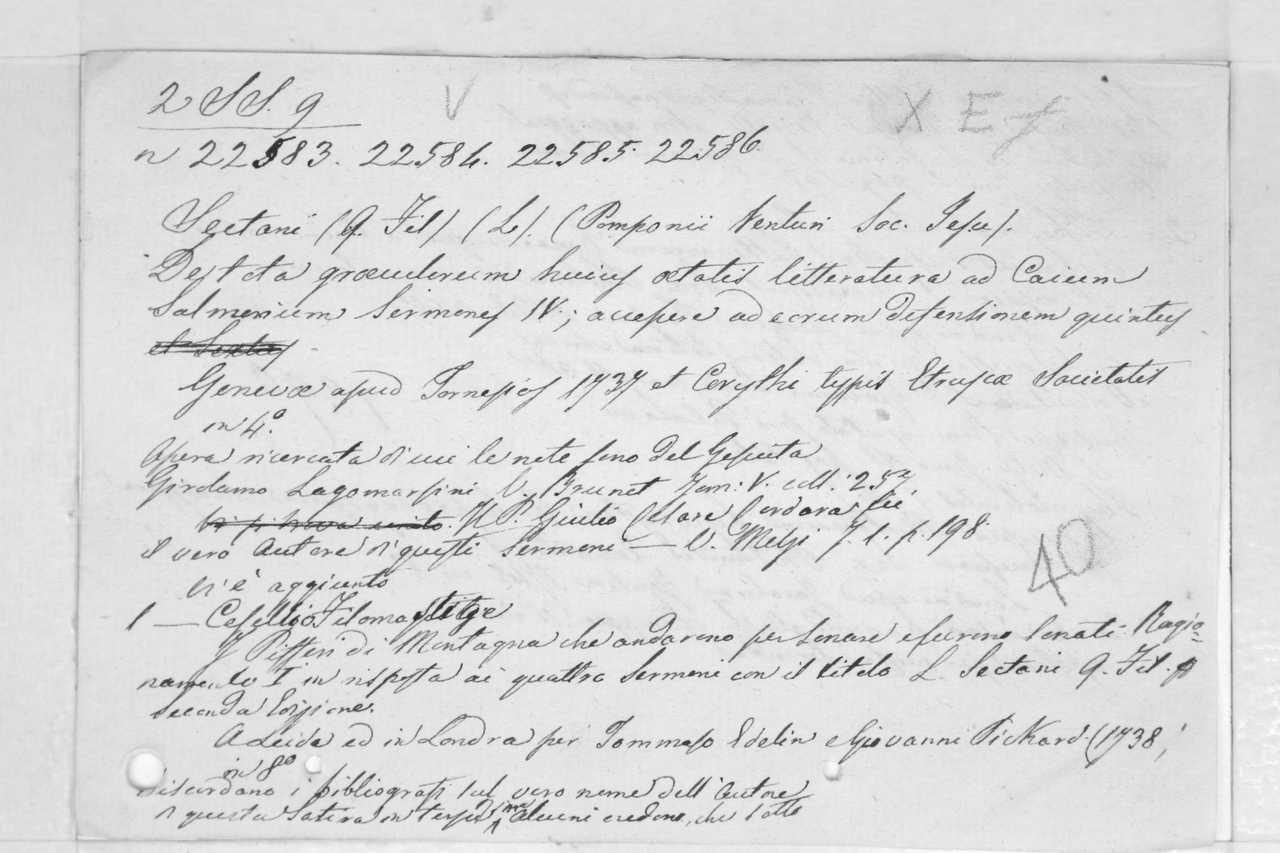 2 SS. 9
V
X E f
n 22583. 22584. 22585. 22586.
Sectani (Q. Fil) (L). (Pomponii Venturi Soc. Jesu).
De tota græculorum huius ætatis litteratura ad Caium
Salmorium Sermones IV.; accepere ad eorum defensionem quintus
et Sextus
Genevæ apud Tornesios 1737 et Corythi typis Etruscæ Societatis
in 4.o
Opera ricercata di cui le note sono del Gesuita
Girolamo Lagomarsini V. Brunet Tom: V. coll: 257
Il P. Giulio Cesare Cordara fu
il vero Autore di questi Sermoni — V. Melzi T. 1. p. 198
Vi è aggiunto
40
1 — Cesellio Filomastige
I Pifferi di Montagna che andarono per sonare e furono sonati. Ragio=
namento I in risposta ai quattro Sermoni con il titolo L. Sectani Q. Fil.
Seconda Edizione.
A Leida ed in Londra per Tommaso Edelin e Giovanni Pickard (1738)
in 8o
Discordano i bibliografi sul vero nome dell'Autore
di questa Satira in terza rima Alcuni credono, che sotto